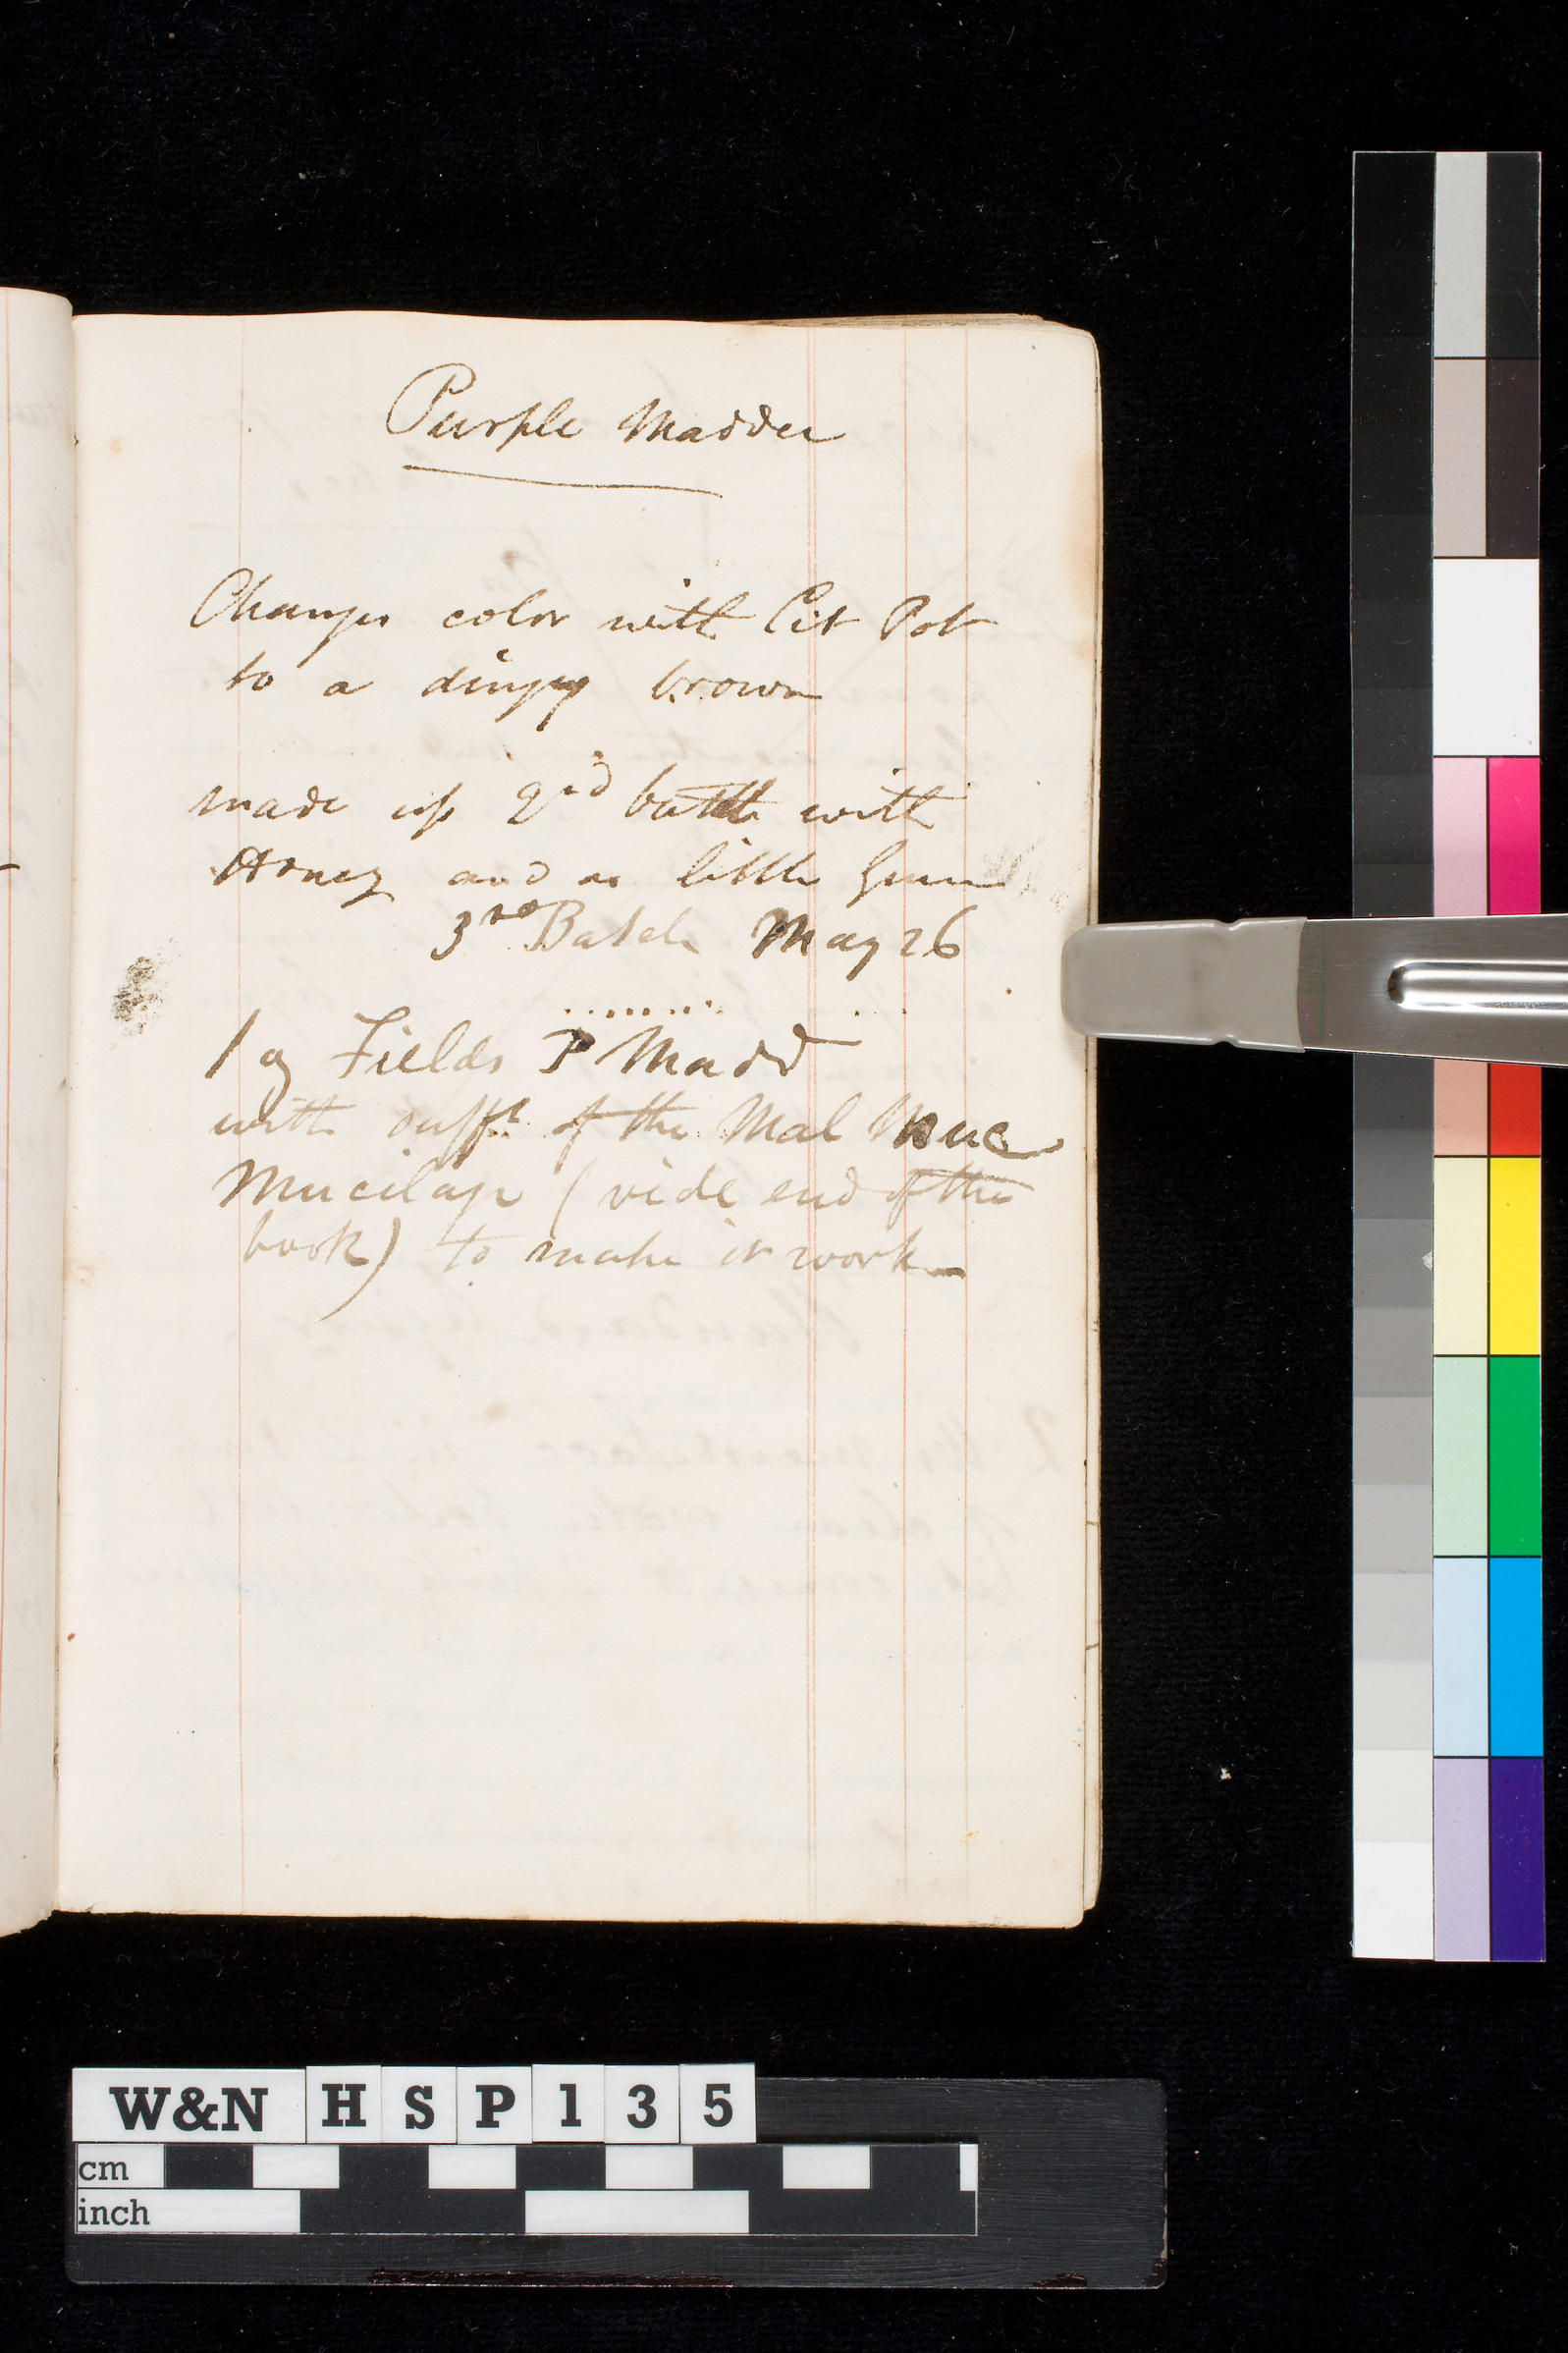 Purple Madder
Changes color with Cit Pot
to a dingy brown
made up 2nd batch with
Honey and a little Gum
3rd Batch May 26
1 oz Fields P Madd
with suff.t of the Mal
Mucilage (vide end of the
book) to make it work
W&N HSP135
cm
inch